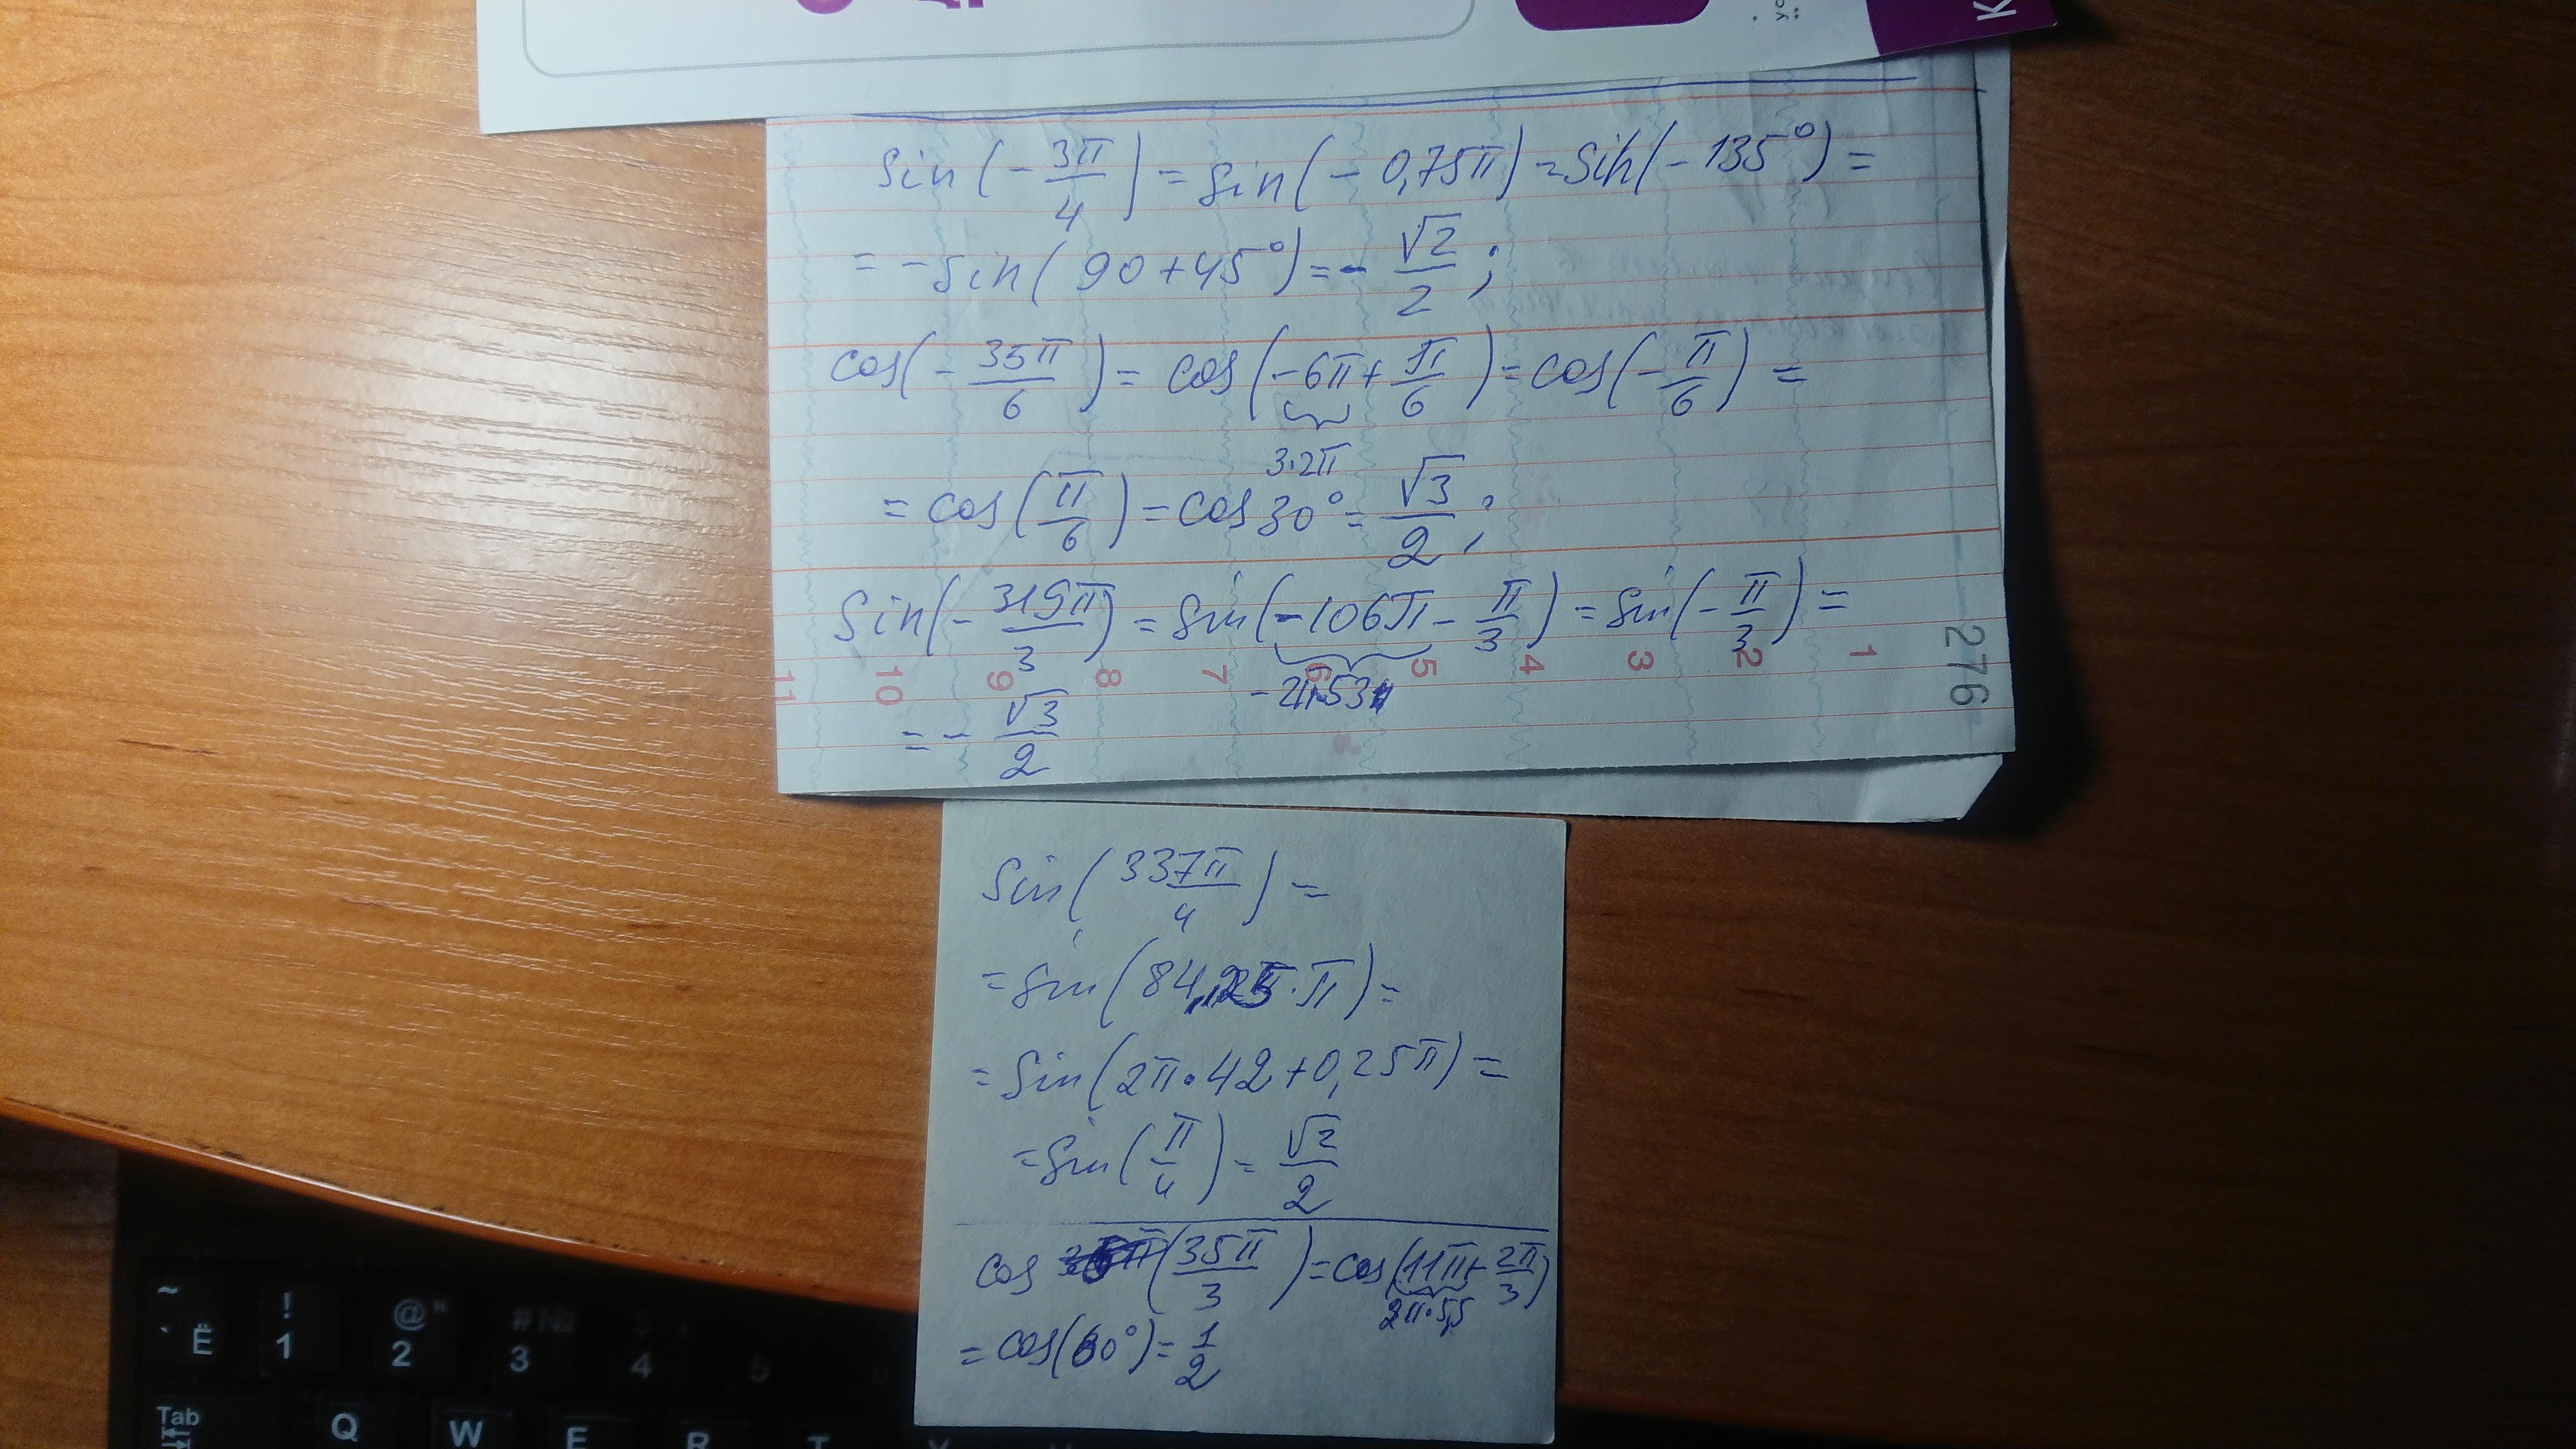 sin(-3π/4) = sin(-0,75π) = sin(-135°) =
= -sin(90+45°) = -√2/2;
cos(-35π/6) = cos(-6π+π/6) = cos(-π/6) =
3·2π
= cos(π/6) = cos30° = √3/2;
sin(-319π/3) = sin(-106π-π/3) = sin(-π/3) =
= -√3/2
11 10 9 8 7 6 5 4 3 2 1
276
sin(337π/4) =
= sin(84,25·π) =
= sin(2π·42+0,25π) =
= sin(π/4) = √2/2
cos (35π/3) = cos(11π+2π/3)
2π·5,5
= cos(60°) = 1/2
~ ` Ё
! 1
@ " 2
# № 3
4
5
Tab
Q W E R T